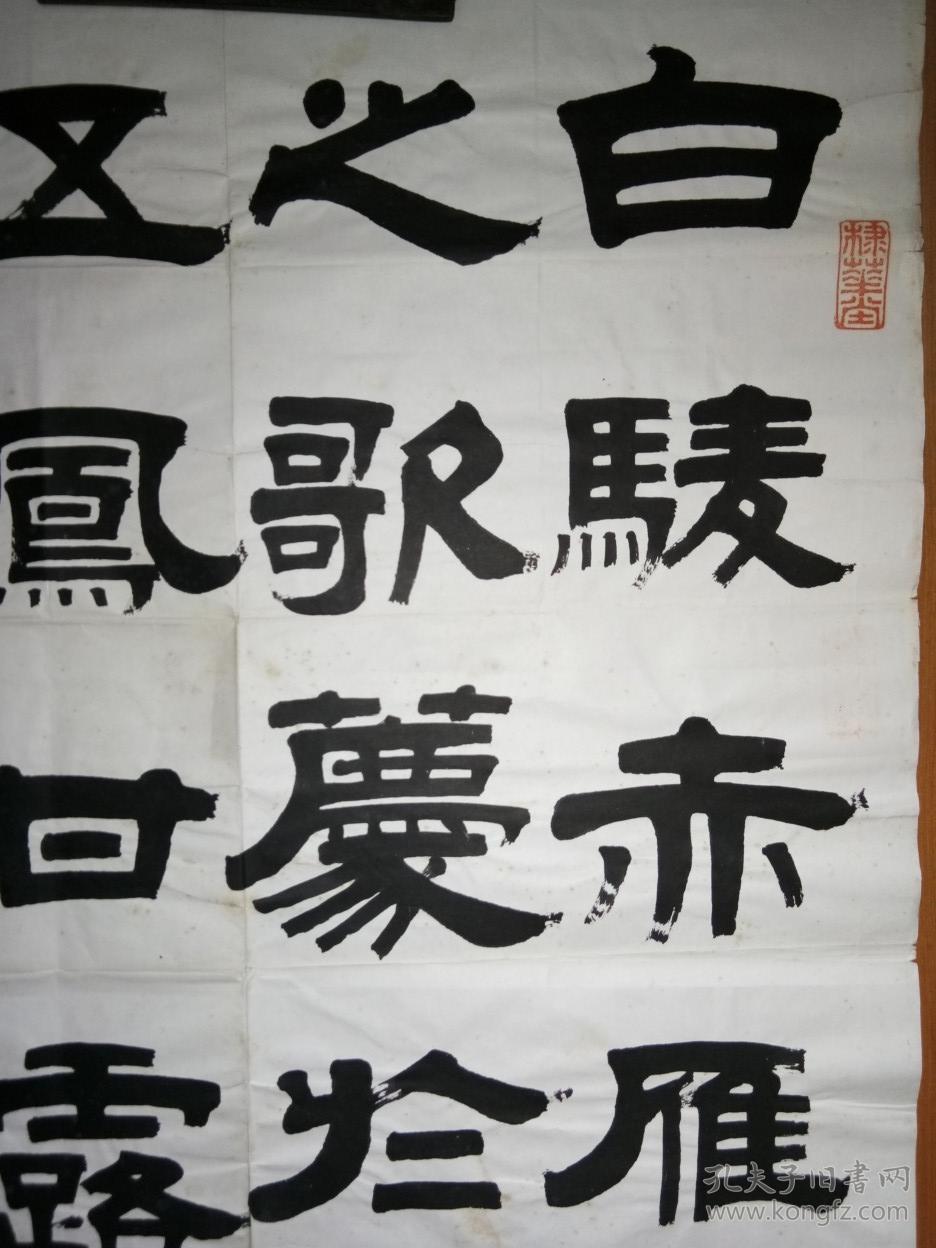 白赤雁
之歌薦於
五鳳甘露
孔夫子旧書网
www.kongfz.com